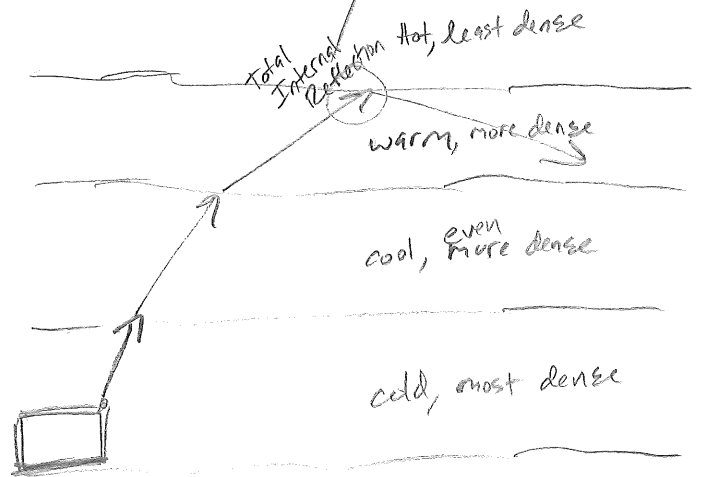 Total
Internal
Reflection
Hot, least dense
warm, more dense
cool, even
more dense
cold, most dense